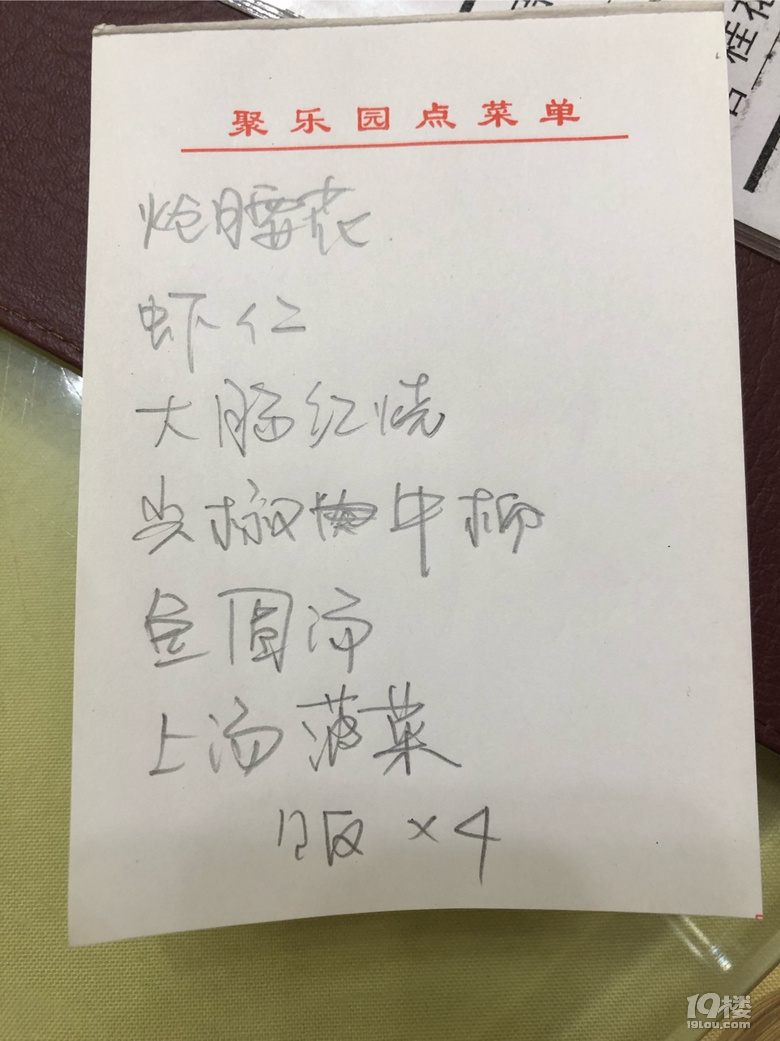 聚乐园点菜单
炝腰花
虾仁
大肠红烧
尖椒牛柳
鱼圆汤
上汤菠菜
饭 ×4
19楼
19lou.com